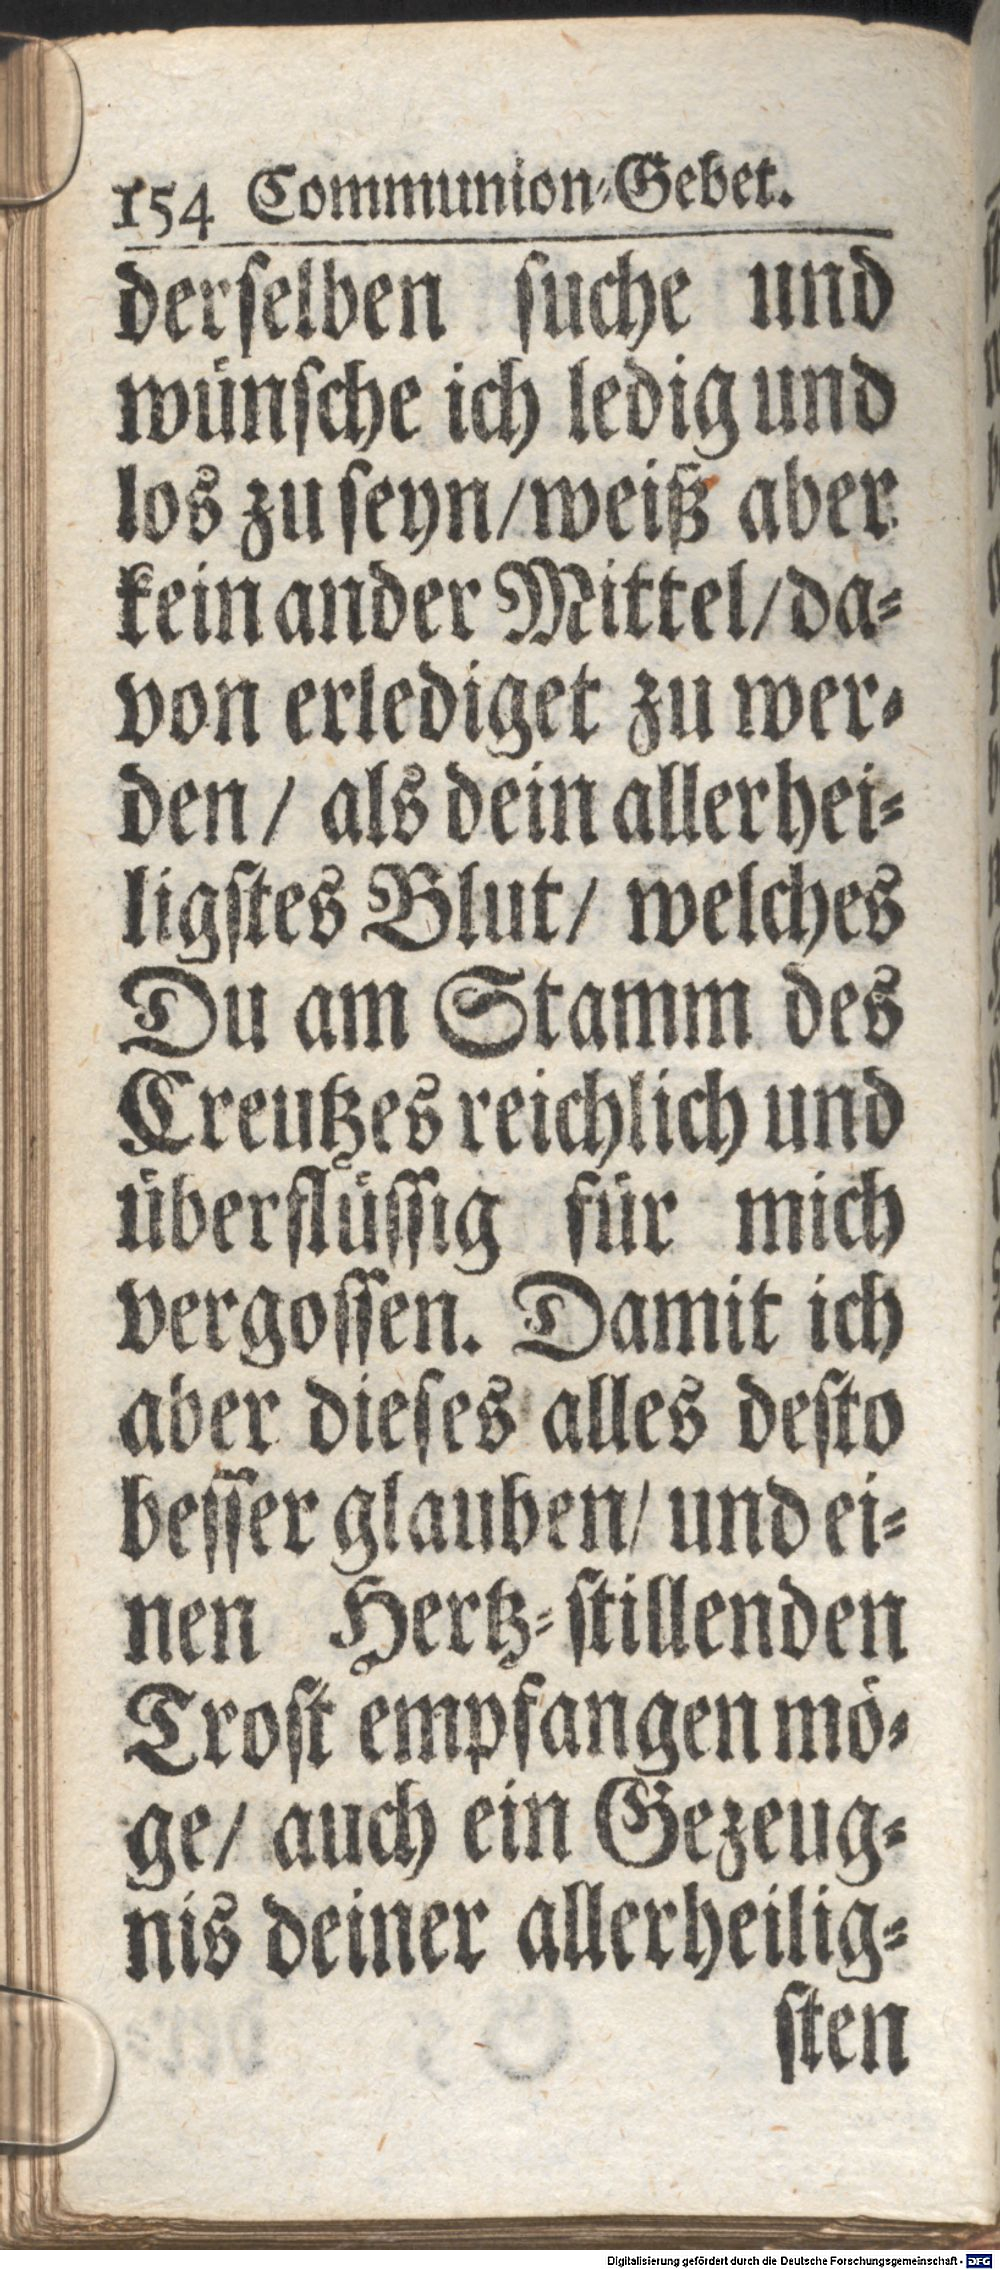 154 Communion-Gebet.
derselben suche und
wünsche ich ledig und
los zu seyn/weiß aber
kein ander Mittel/da-
von erlediget zu wer-
den/ als dein allerhei-
ligstes Blut/ welches
Du am Stamm des
Creutzes reichlich und
überflüssig für mich
vergossen. Damit ich
aber dieses alles desto
besser glauben/ und ei-
nen Hertz-stillenden
Trost empfangen mö-
ge/ auch ein Gezeug-
nis deiner allerheilig-
sten
Digitalisierung gefördert durch die Deutsche Forschungsgemeinschaft - DFG